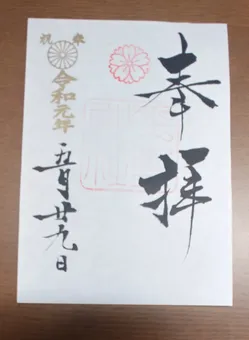 奉拝
祝祭
令和元年
五月廿九日